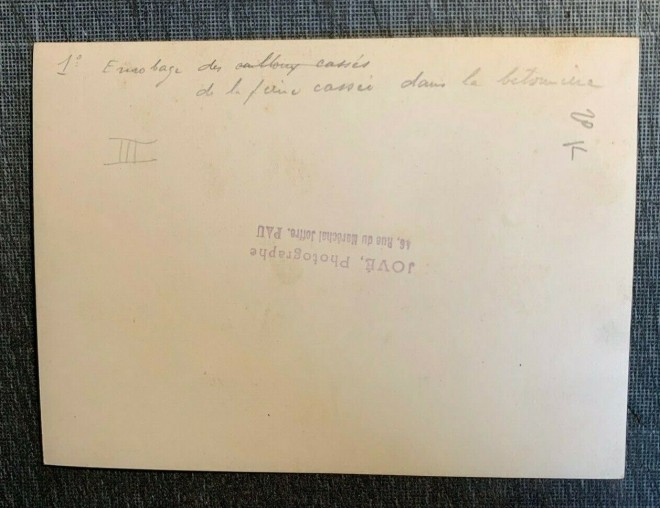 1° Enrobage des cailloux cassés
de la pierre cassée dans la bétonnière
III
JOVÉ, Photographe
46, Rue du Maréchal Joffre, PAU